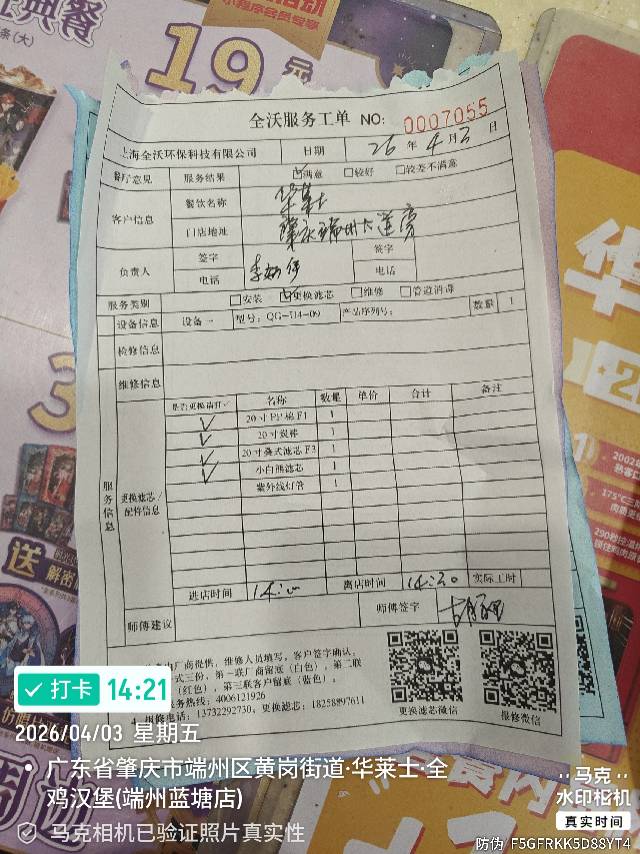 餐
条(大)
19元
小程序会员专享
全沃服务工单 NO: 0007055
上海全沃环保科技有限公司 日期 26 年 4 月 3 日
餐厅意见 服务结果 ☑满意 □较好 □较差不满意
客户信息 餐饮名称 华莱士
门店地址 肇庆端州大道旁
负责人 签字 签字
电话 电话
服务类别 □安装 ☑更换滤芯 □维修 □管道消毒
设备信息 设备一 型号: 产品序列号: 数量 1
检修信息
维修信息
服务信息
更换滤芯/配件信息
是否更换请打✓ 名称 数量 单价 合计 备注
✓ 20寸PP棉F1 1
✓ 20寸炭棒 1
✓ 20寸叠式滤芯F3 1
✓ 小白熊滤芯 1
紫外线灯管 1
进店时间 14:00 离店时间 14:20 实际工时
师傅建议 师傅签字
厂商提供，维修人员填写，客户签字确认，
式三份，第一联厂商留底（白色），第二联
（红色），第三联客户留底（蓝色）。
服务热线: 4006121926
报修电话: 13732292730, 更换滤芯: 18258897611
更换滤芯微信
报修微信
送
解密
华
2002
175°C
290秒
打卡 14:21
2026/04/03 星期五
广东省肇庆市端州区黄岗街道·华莱士·全
鸡汉堡(端州蓝塘店)
马克相机已验证照片真实性
马克
水印相机
真实时间
防伪 F5GFRKK5D88YT4